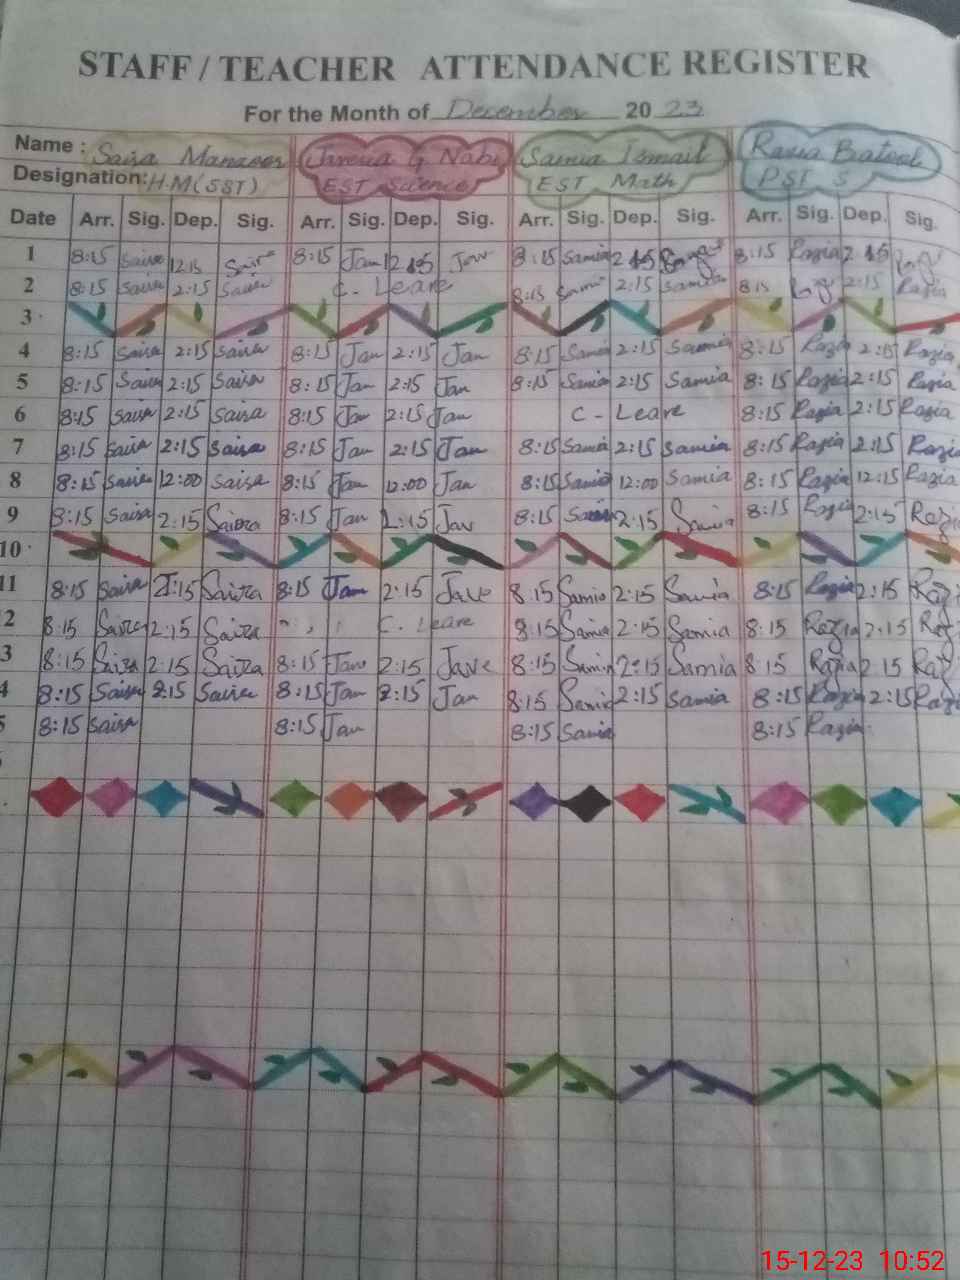 STAFF / TEACHER ATTENDANCE REGISTER
For the Month of December 20 23
Name : Saira Manzoor G Nabi Samia Ismail Razia Batool
Designation: H.M (SST) EST Science EST Math
Date Arr. Sig. Dep. Sig. Arr. Sig. Dep. Sig. Arr. Sig. Dep. Sig. Arr. Sig. Dep. Sig.
1 8:15 Saira 12:15 Saira 8:15 Jan 8:15 Samia 8:15 Razia
2 8:15 Saira 2:15 Saira C. Leave 8:15 Samia 2:15 Samia 8:15 2:15 Razia
3
4 8:15 Saira 2:15 Saira 8:15 Jan 2:15 Jan 8:15 Samia 2:15 Samia 8:15 Razia 2:15 Razia
5 8:15 Saira 2:15 Saira 8:15 Jan 2:15 Jan 8:15 Samia 2:15 Samia 8:15 Razia 2:15 Razia
6 8:15 Saira 2:15 Saira 8:15 Jan 2:15 Jan C - Leave 8:15 Razia 2:15 Razia
7 8:15 Saira 2:15 Saira 8:15 Jan 2:15 Jan 8:15 Samia 2:15 Samia 8:15 Razia 2:15 Razia
8 8:15 Saira 12:00 Saira 8:15 Jan 12:00 Jan 8:15 Samia 12:00 Samia 8:15 Razia 12:15 Razia
9 8:15 Saira 2:15 Saira 8:15 Jan 2:15 Jav 8:15 2:15 Samia 8:15 Razia 2:15 Razia
10
11 8:15 Saira 2:15 Saira 8:15 Jan 2:15 Jave 8:15 Samia 2:15 Samia 8:15 Razia 2:15 Raz
2 8:15 Saira 2:15 Saira C. Leave 8:15 Samia 2:15 Samia 8:15 Razia 2:15 Raz
3 8:15 Saira 2:15 Saira 8:15 Jan 2:15 Jave 8:15 Samia 2:15 Samia 8:15 Razia 2:15 Raz
4 8:15 Saira 2:15 Saira 8:15 Jan 2:15 Jan 8:15 Samia 2:15 Samia 8:15 Razia 2:15 Razi
5 8:15 Saira 8:15 Jan 8:15 Samia 8:15 Razia
15-12-23 10:52